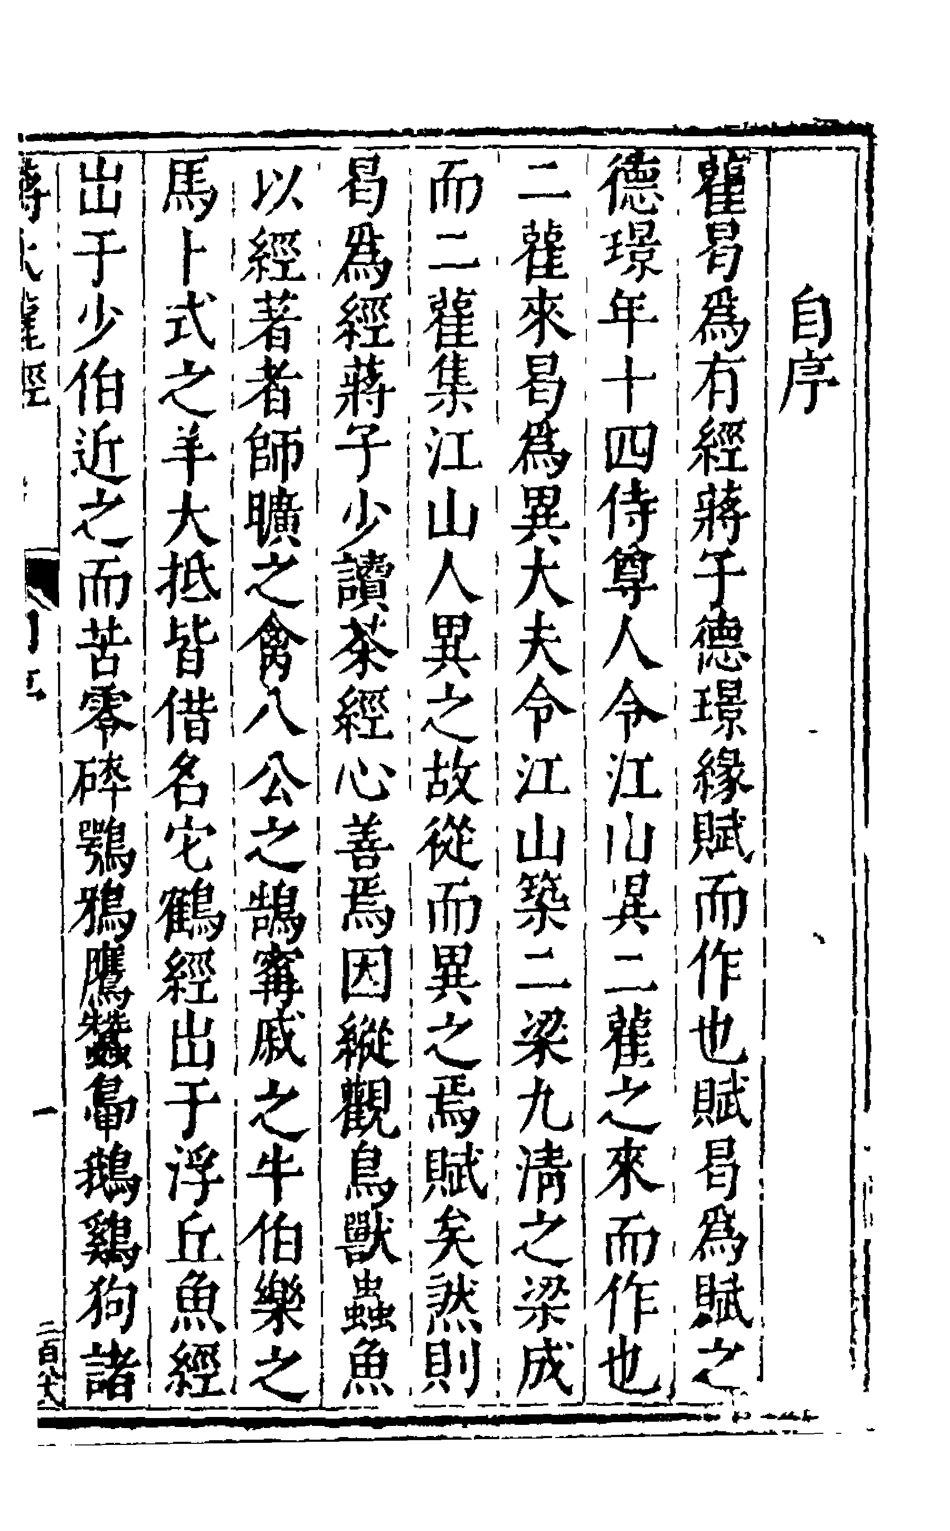 自序
雚曷爲有經蔣子德璟緣賦而作也賦曷爲賦之
德璟年十四侍尊人令江山異二雚之來而作也
二雚來曷爲異大夫令江山築二梁九淸之梁成
而二雚集江山人異之故從而異之焉賦矣然則
曷爲經蔣子少讀茶經心善焉因縱觀鳥獸蟲魚
以經著者師曠之禽八公之鵠甯戚之牛伯樂之
馬卜式之羊大抵皆借名它鶴經出于浮丘魚經
出于少伯近之而苦零碎鶚鴉鷹蠶鳧鵝鷄狗諸
雚經
一
二百八